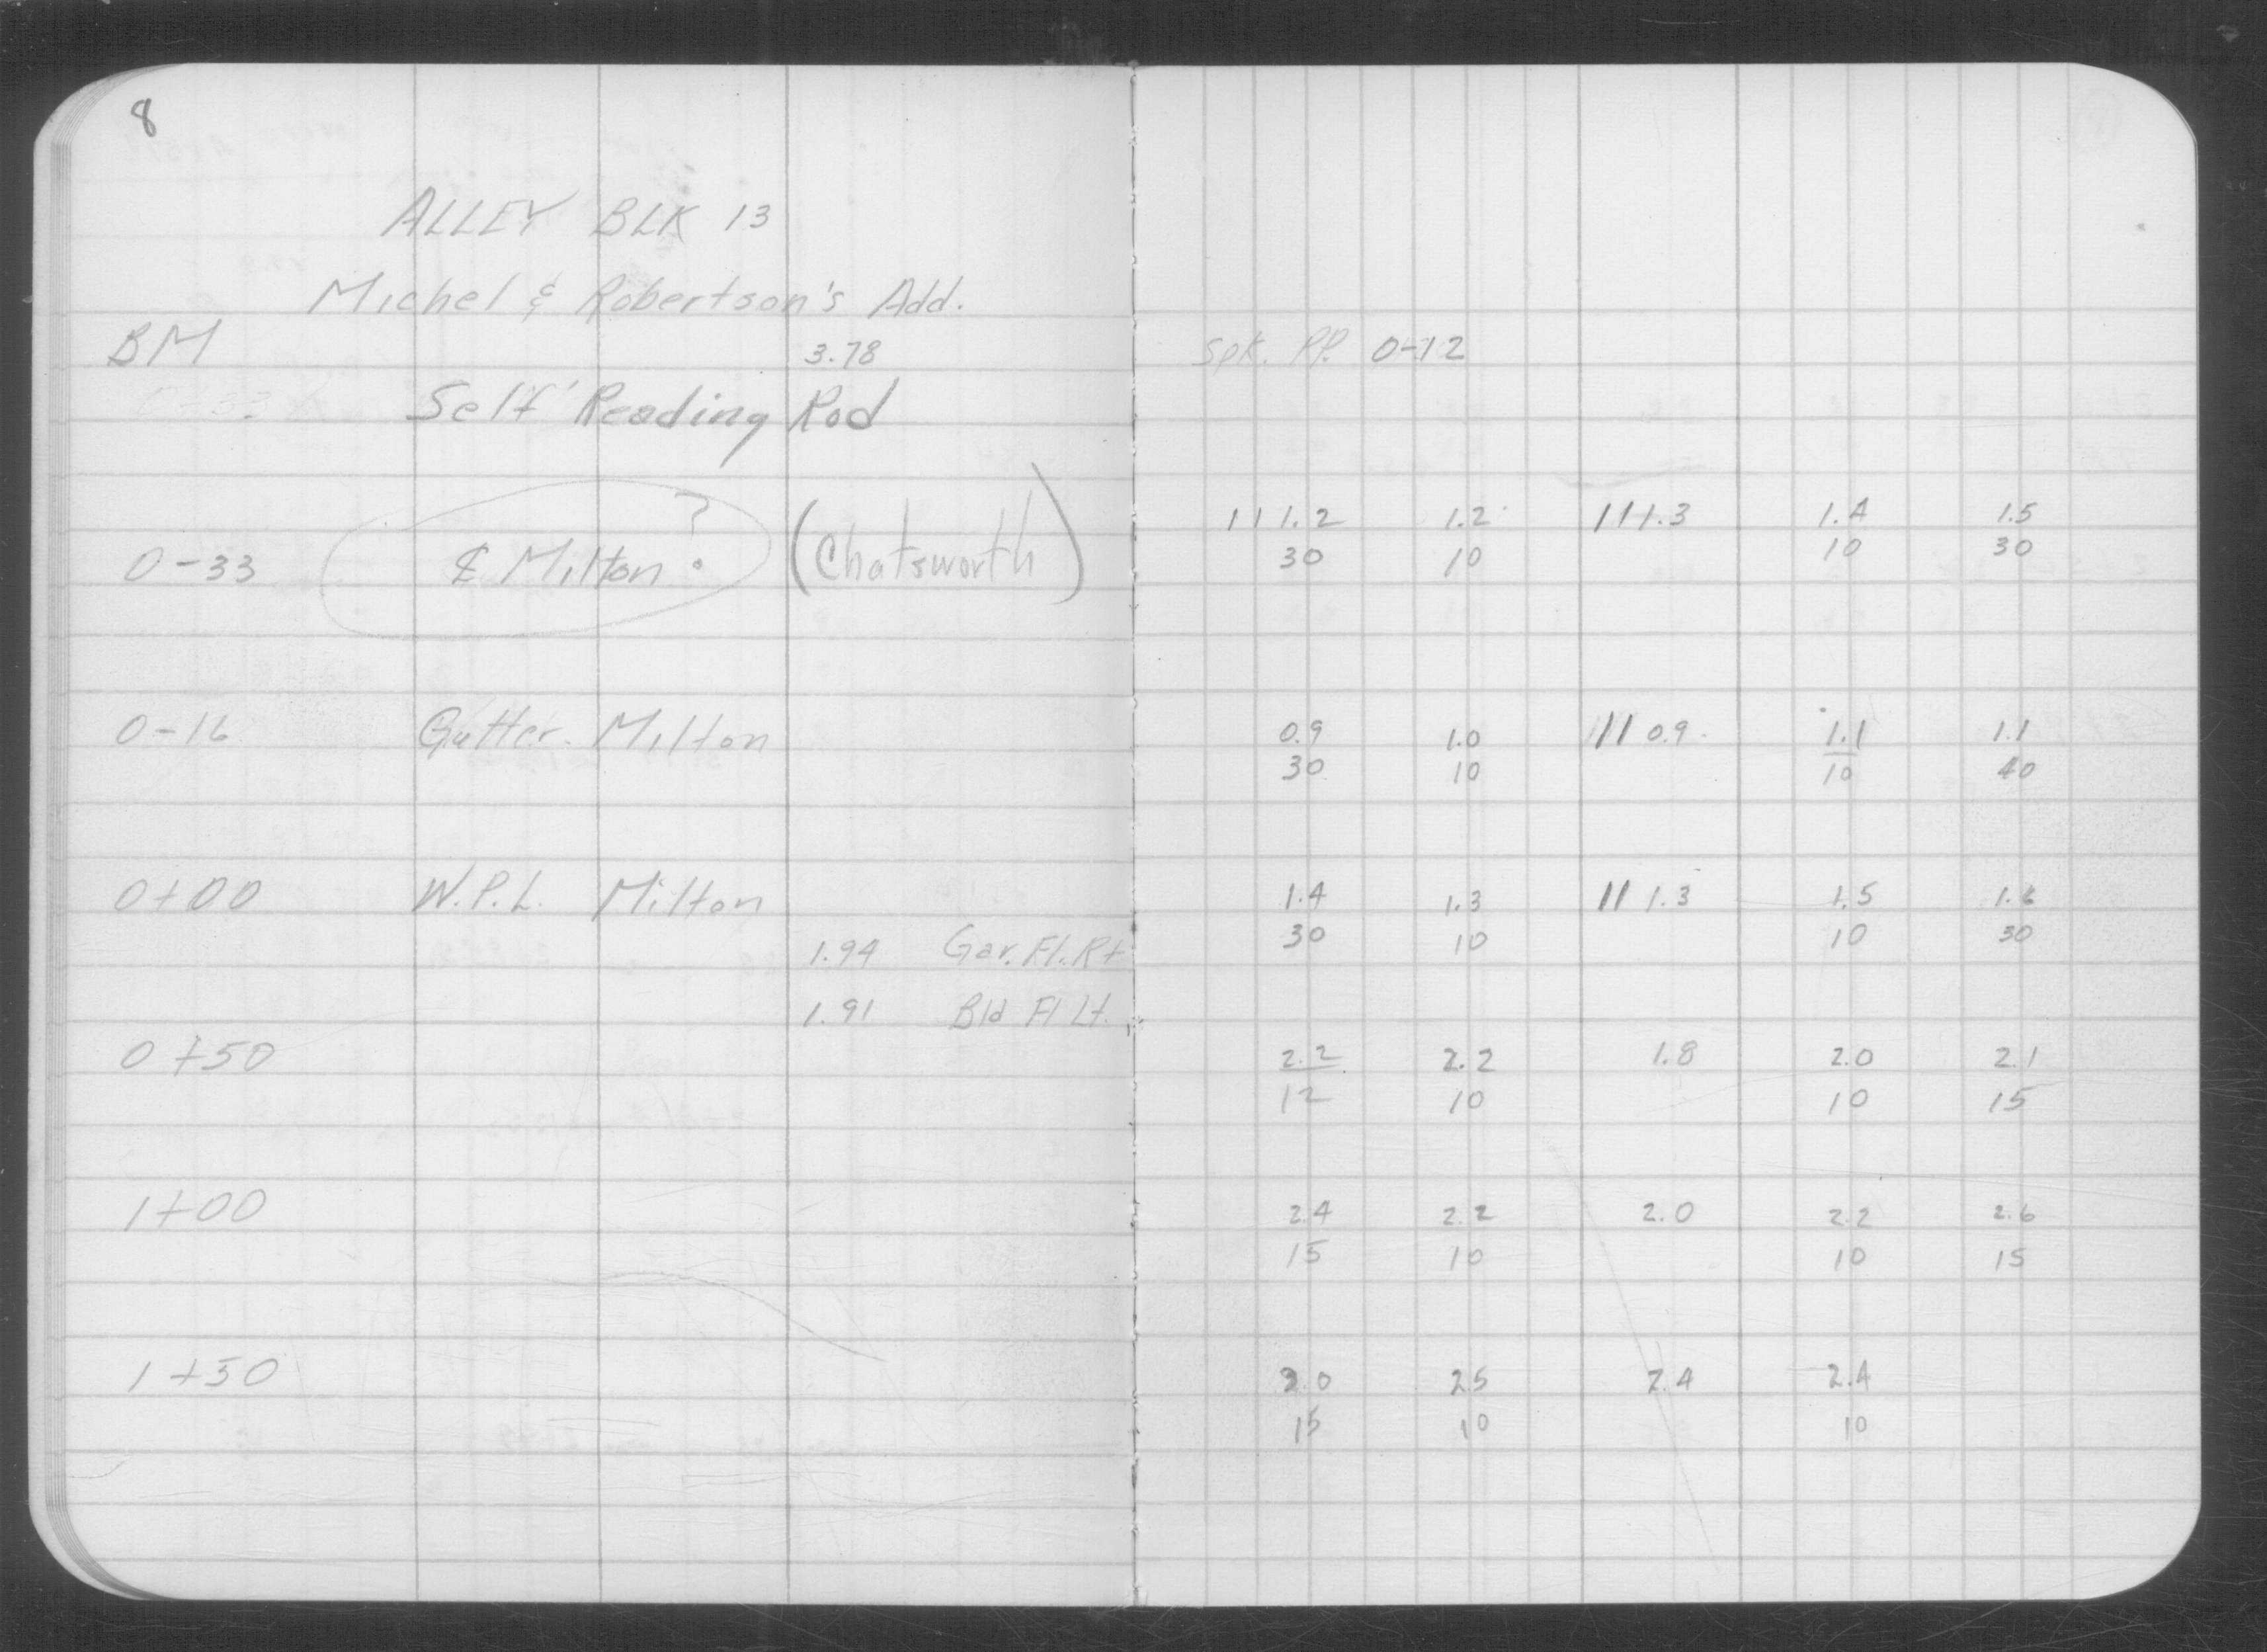 8
ALLEY BLK 13
Michel & Robertson's Add.
BM 3.78 Spk. PP. 0-12
Self Reading Rod
0-33 ℄ Milton? (Chatsworth) 111.2 1.2 111.3 1.4 1.5
30 10 10 30
0-16 Gutter. Milton 0.9 1.0 111 0.9 1.1 1.1
30 10 10 40
0+00 W.P.L. Milton 1.4 1.3 11 1.3 1.5 1.6
30 10 10 30
1.94 Gar. Fl. Rt
1.91 Bld Fl Lt.
0+50 2.2 2.2 1.8 2.0 2.1
12 10 10 15
1+00 2.4 2.2 2.0 2.2 2.6
15 10 10 15
1+50 3.0 2.5 2.4 2.4
15 10 10